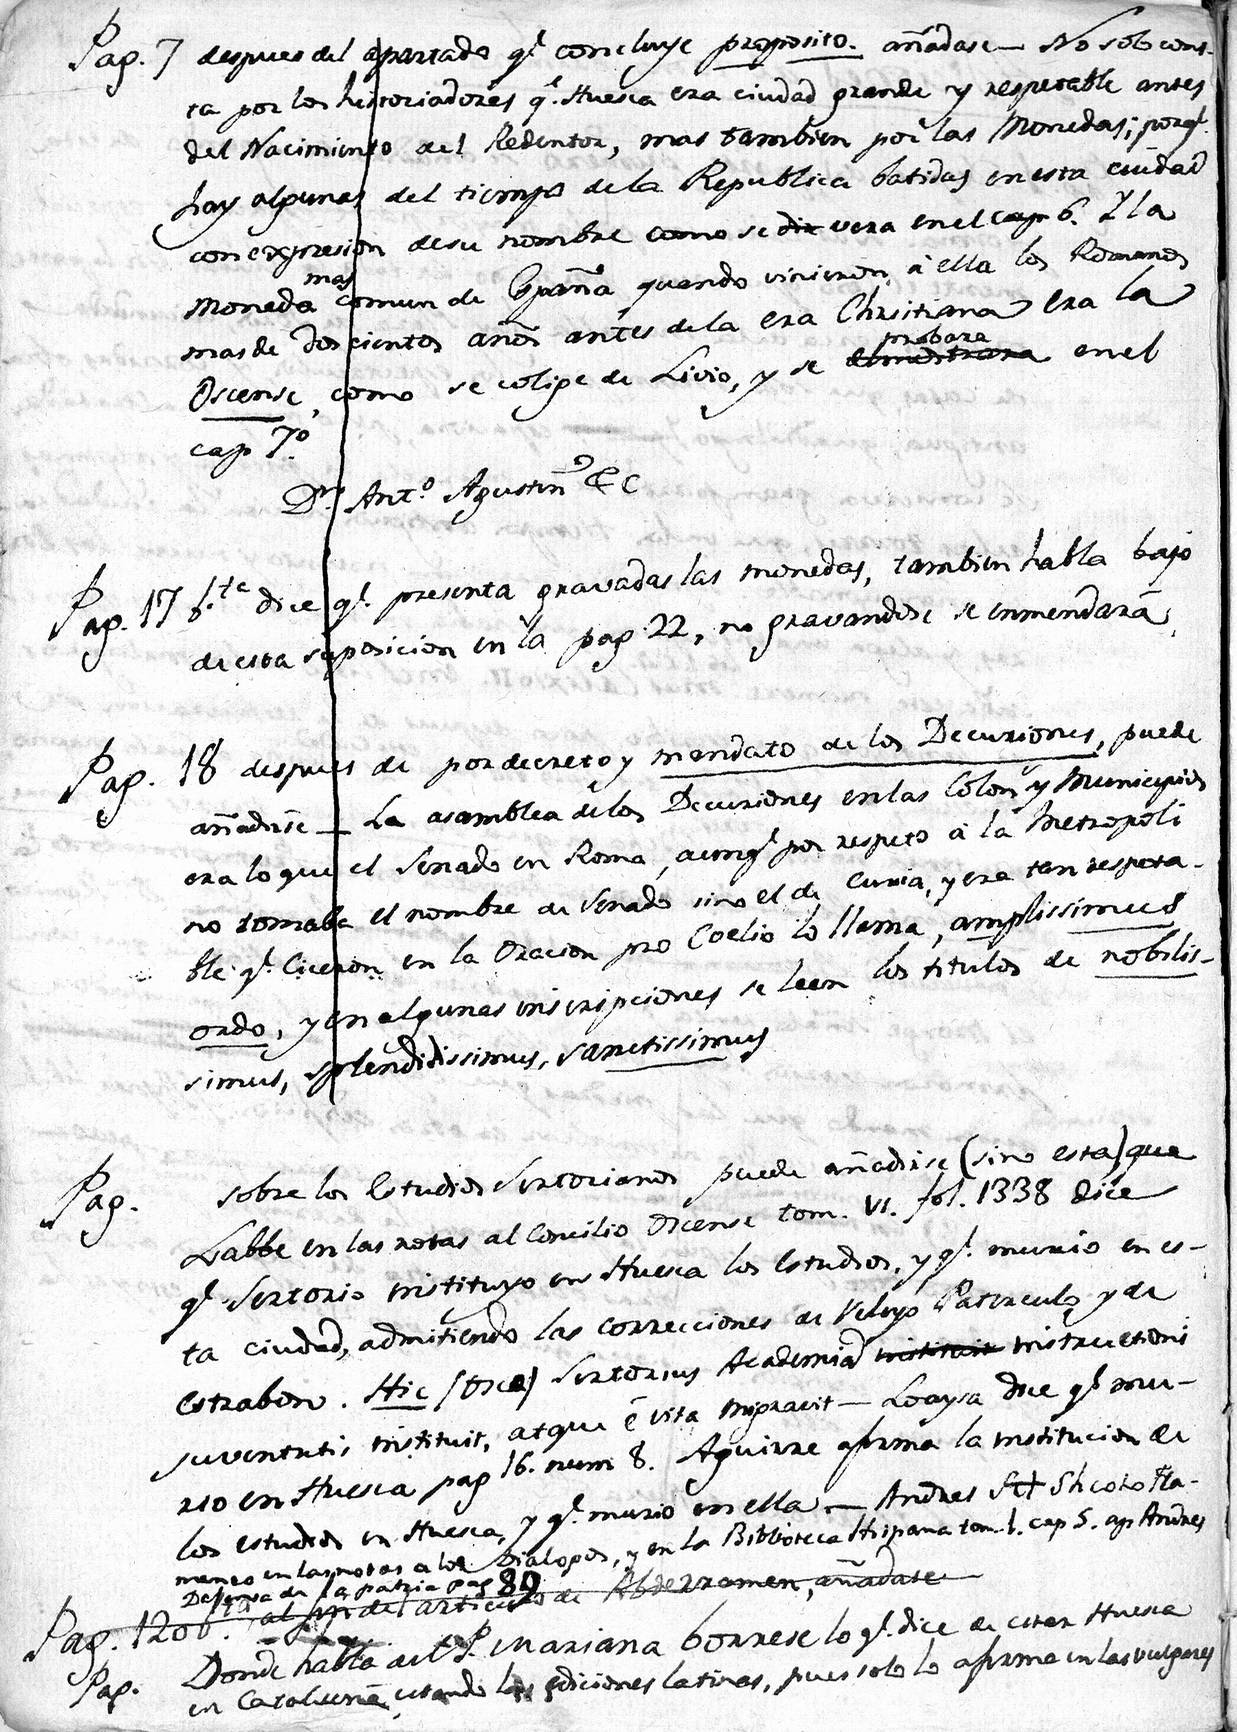 Pag. 7 despues del apartado q.e concluye proposito. añadase — No solo cons-
ta por los historiadores q.e Huesca era ciudad grande y respetable antes
del Nacimiento del Redentor, mas tambien por las Monedas; porq.e
hay algunas del tiempo de la Republica batidas en esta ciudad
con expresion de su nombre como se dix vera en el cap 6. Y la
mas
Moneda comun de España quando vinieron à ella los Romanos
mas de doscientos años antes de la era Christiana era la
probara
Oscense, como se colige de Livio, y se demostrara en el
cap 7.o
D.n Ant.o Agustin &c
Pag. 17 b.te dice q.e presenta gravadas las monedas, tambien habla bajo
de esta suposicion en la pag 22, no gravandose se enmendarà.
Pag. 18 despues de por decreto y mandato de los Decuriones, puede
añadirse — La asamblea de los Decuriones en las Colon.s y Municipios
era lo que el Senado en Roma, aunq.e por respeto à la Metropoli
no tomaba el nombre de Senado sino el de Curia, y era tan respeta-
ble q.e Ciceron en la Oracion pro Coelio lo llama, amplissimus
ordo, y en algunas inscripciones se leen los titulos de nobilis-
simus, splendidissimus, sanctissimus
Pag. sobre los Estudios Sertorianos puede añadirse (sino esta) que
Labbe en las notas al Concilio Oscense tom. VI. fol. 1338 dice
q.e Sertorio instituyo en Huesca los Estudios, y q.e murio en es-
ta ciudad, admitiendo las correcciones de Veleyo Paterculo y de
Estrabon. Hic (Osca) Sertorius Academia instituit instructioni
juventutis instituit, atque è vita migravit — Loaysa dice q.e mu-
rio en Huesca pag 16. num 8. Aguirre afirma la institucion de
los estudios en Huesca, y q.e murio en ella — Andres Sct Shcoto Fla-
menco en las notas a los Dialogos, y en la Biblioteca Hispana tom. 1. cap 5. ap Andres
Defensa de la patria pag 89
Pag. 120 b.ta al fin del articulo de Abderramen, añadase
Pag. Donde habla del P. Mariana borrese lo q.e dice de estar Huesca
en Cataluña, citando las ediciones latinas, pues solo lo afirma en las vulgares